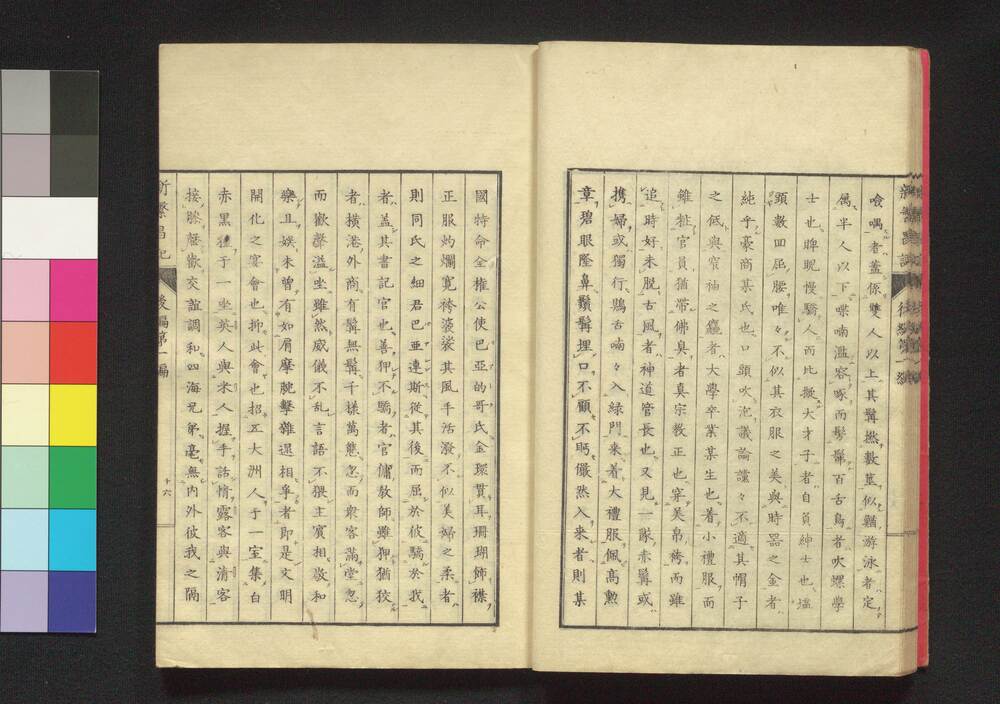 噞喁者蓋係雙人以上其髯撚數莖似鯔游泳者定
属半人以下喋喃濫容啄而髣髴百舌鳥者吹螺學
士也睥睨慢驕人而比擬大才子者自負紳士也
頭數四屈腰唯々不似其衣服之美與時器之金者
純乎豪商某氏也口頭吹泡議論讜々不適其帽子
之低與窄袖之麤者大學卒業某生也着小禮服而
雖粧官員猶帯佛臭者真宗教正也穿美帛袴而雖
追時好未脱古風者神道管長也又見一隊赤髯或
携婦或獨行鴃舌喃々入緑門来着大禮服佩高勲
章碧眼隆鼻鬚髯埋口不顧不眄儼然入来者則某
國特命全權公使巴亞的哥氏金環貫耳珊瑚飾襟
正服灼爛寛袴婆娑其風手活潑不似美婦之柔者
則同氏之細君巴亞連斯從其後而屈於彼驕於我
者蓋其書記官也善狎不驕者官傭教師雖狎猶狡
者横港外商有髯無髯千様萬態忽而衆客滿堂忽
而歡聲溢坐雖然威儀不乱言語不猥主賓相敬和
樂且娯未曾有如肩摩腕撃雜遝相爭者即是文明
開化之宴會也抑此會也招五大洲人于一室集白
赤黒種于一坐英人與米人握手話情露客與清客
接膝聲歡交誼調和四海兄弟毫無内外彼我之隔
後編第一編
十六